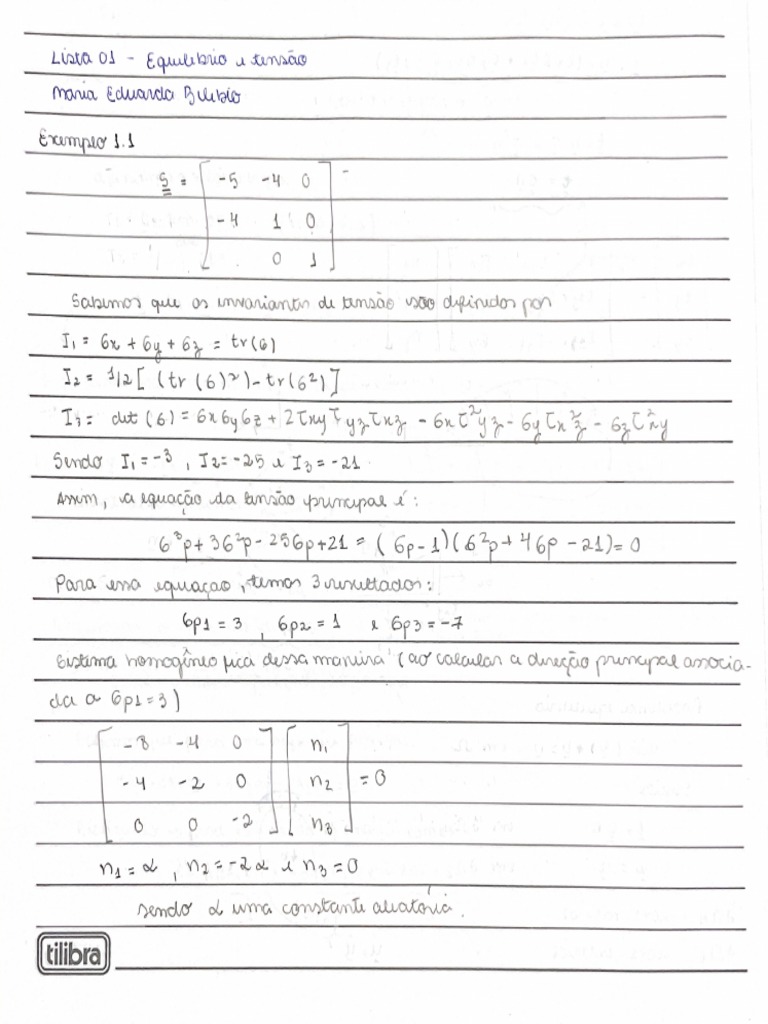 Lista 01 - Equilíbrio e tensão
Maria Eduarda Bilibio
Exemplo 1.1
S = [ -5 -4 0
-4 1 0
0 1 ]
Sabemos que os invariantes de tensão são definidos por
I₁ = σx + σy + σz = tr(σ)
I₂ = 1/2 [ (tr (σ)²) - tr(σ²) ]
I₃ = det (σ) = σxσyσz + 2τxyτyzτxz - σxτ²yz - σyτx²z - σzτ²xy
Sendo I₁ = -3 , I₂ = -25 e I₃ = -21
Assim, a equação da tensão principal é:
σ³p + 3σ²p - 25σp + 21 = (σp - 1)(σ²p + 4σp - 21) = 0
Para essa equação, temos 3 resultados:
σp1 = 3 , σp2 = 1 e σp3 = -7
Sistema homogêneo fica dessa maneira (ao calcular a direção principal associa-
da a σp1 = 3)
[ -8 -4 0 ] [ n₁ ]
[ -4 -2 0 ] [ n₂ ] = 0
[ 0 0 -2 ] [ n₃ ]
n₁ = α , n₂ = -2α e n₃ = 0
sendo α uma constante aleatória.
tilibra